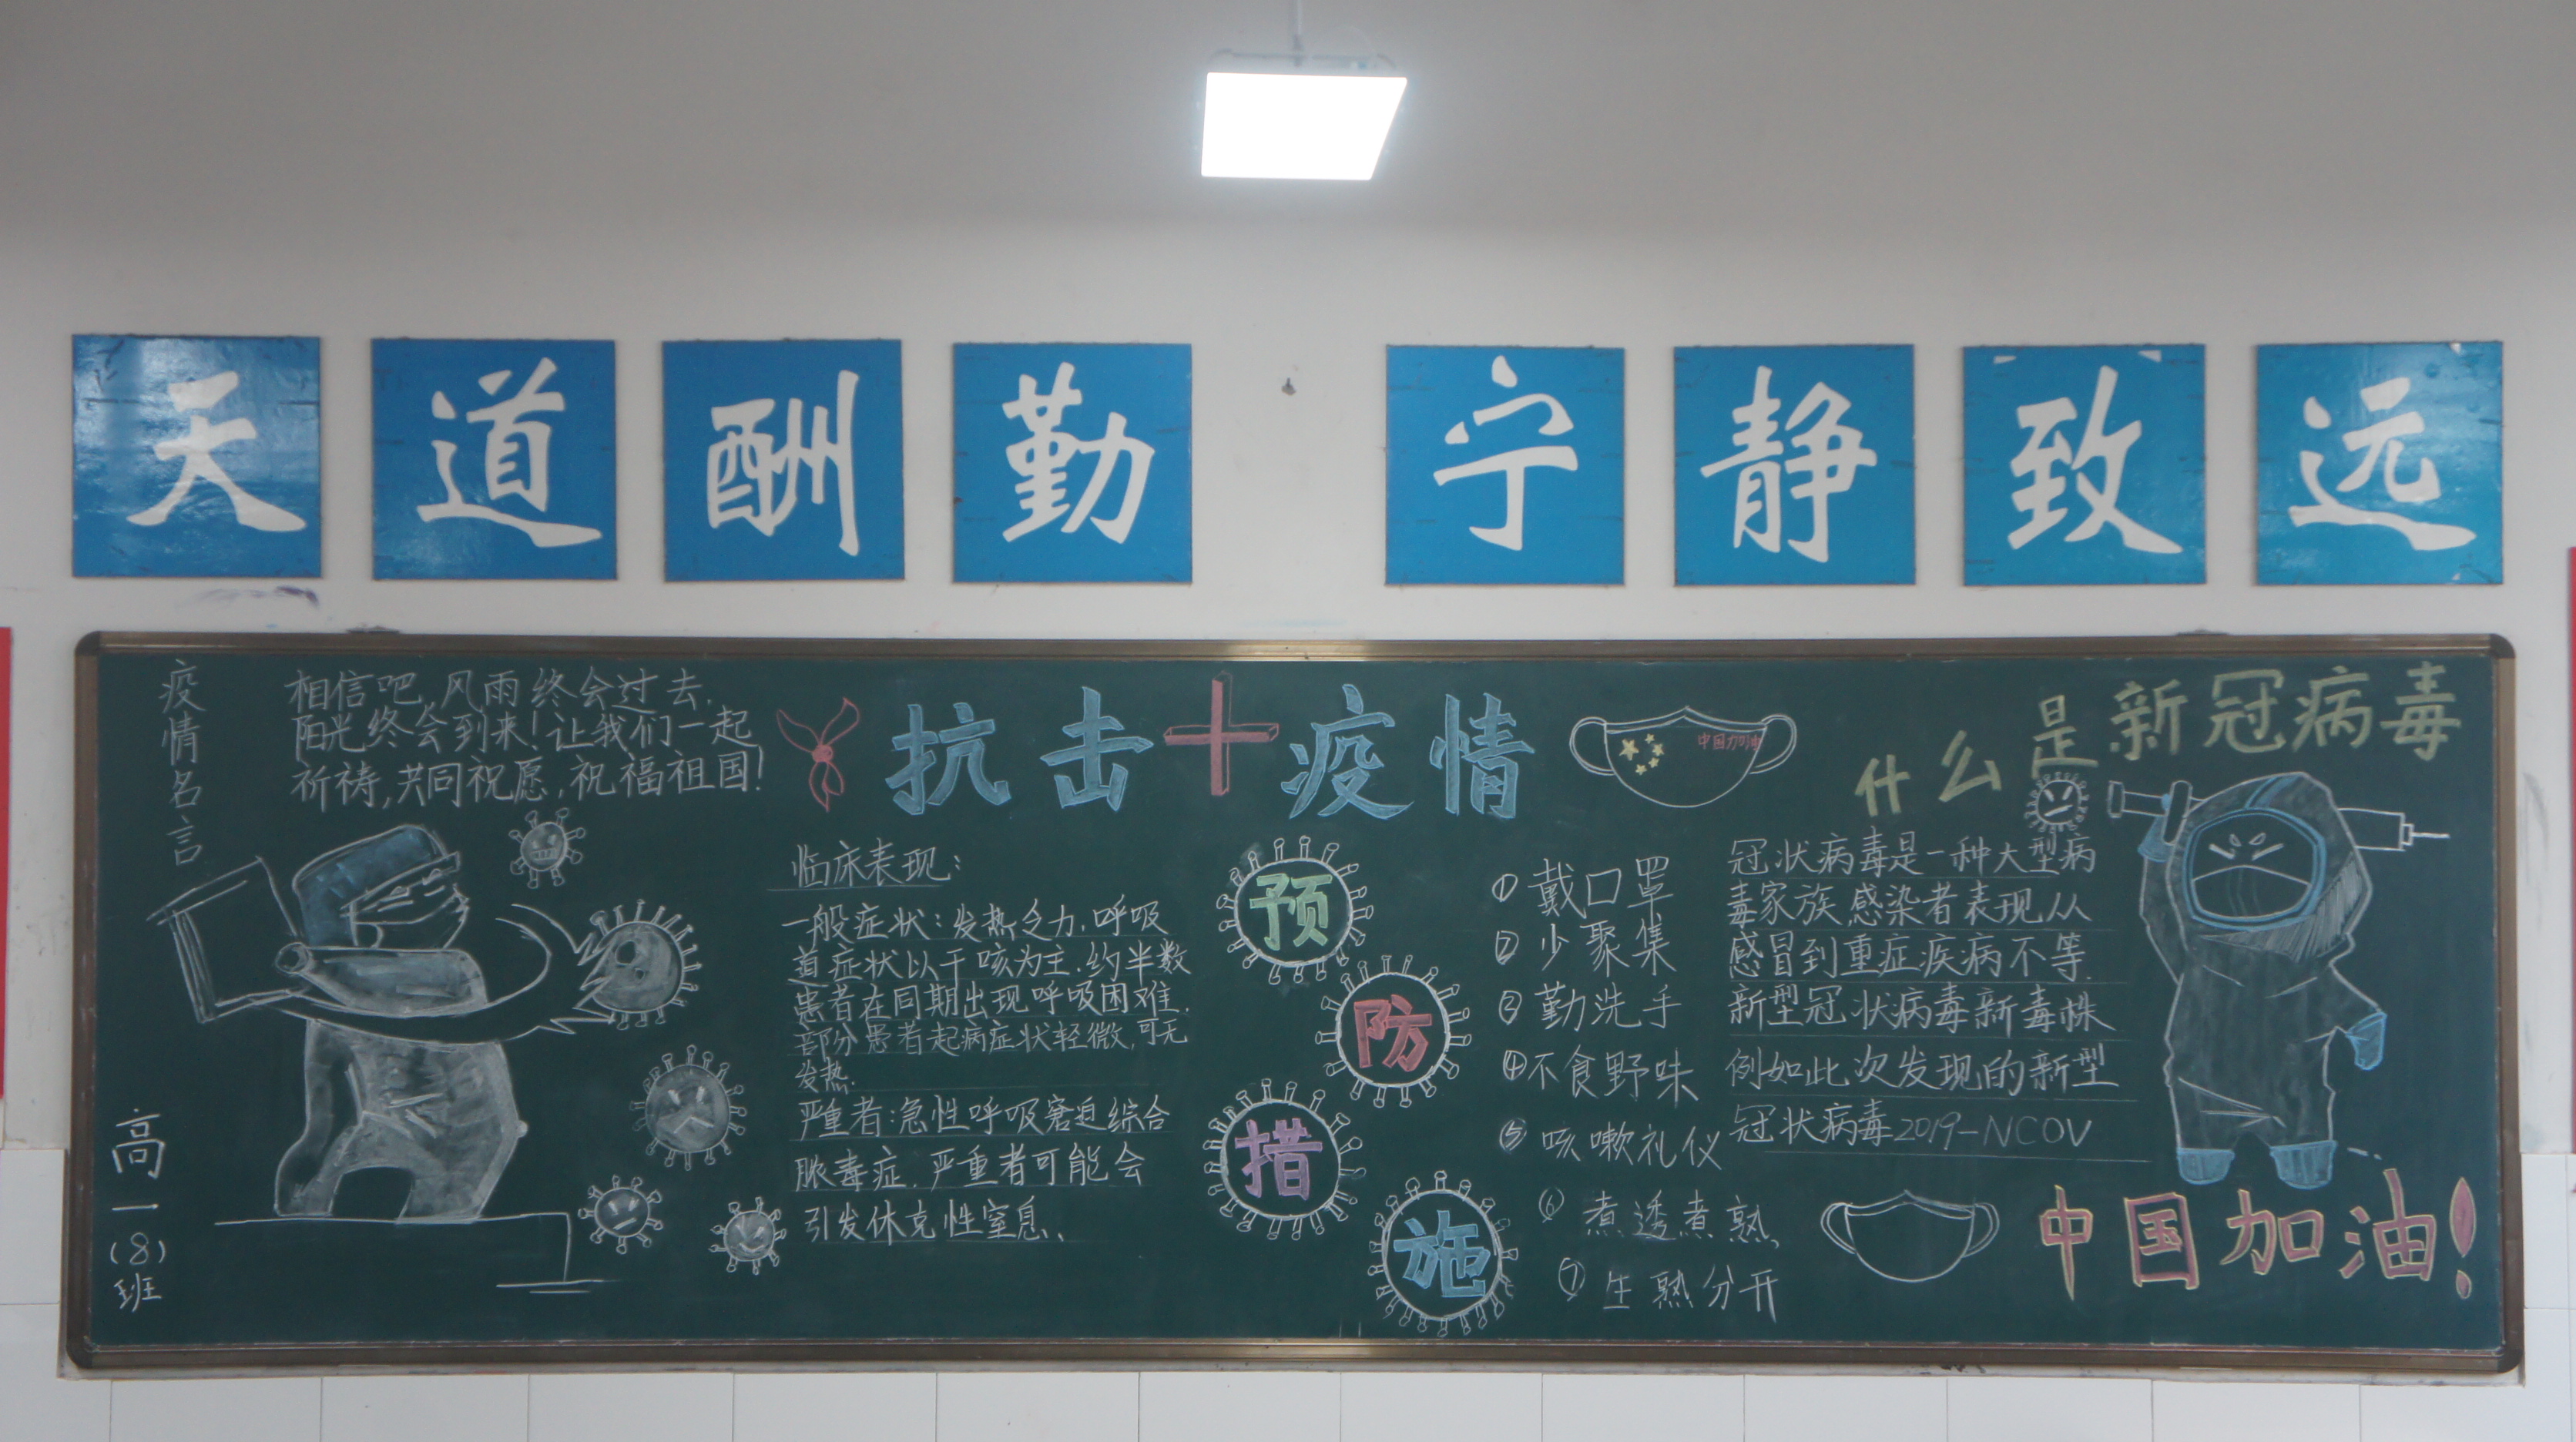 天道酬勤 宁静致远
疫情名言
相信吧,风雨终会过去,
阳光终会到来!让我们一起
祈祷,共同祝愿,祝福祖国!
高一(8)班
抗击疫情
中国加油
临床表现:
一般症状:发热乏力,呼吸
道症状以干咳为主.约半数
患者在同期出现呼吸困难.
部分患者起病症状轻微,可无
发热.
严重者:急性呼吸窘迫综合
脓毒症.严重者可能会
引发休克性窒息、
预
防
措
施
① 戴口罩
② 少聚集
② 勤洗手
④ 不食野味
⑤ 咳嗽礼仪
⑥ 煮透煮熟、
⑦ 生熟分开
什么是新冠病毒
冠状病毒是一种大型病
毒家族感染者表现从
感冒到重症疾病不等.
新型冠状病毒新毒株
例如此次发现的新型
冠状病毒2019-NCOV
中国加油!